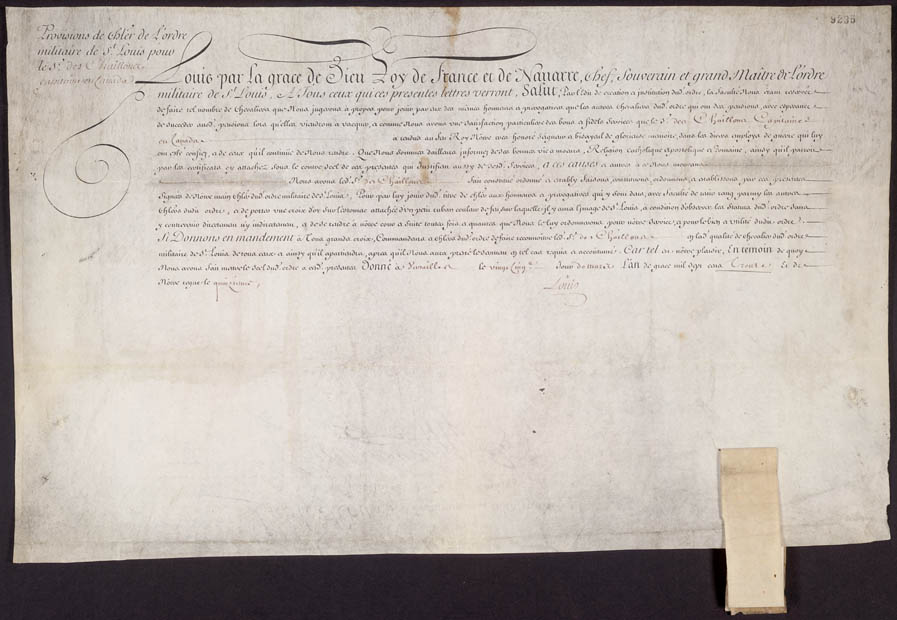 9235
Provisions de Chler de L'ordre
militaire de St. Louis pour
le Sr. des Chaillons
capitaine en Canada
Louis par La grace de Dieu Roy de France et de Navarre, Chef, Souverain et grand Maître de L'ordre
militaire de St. Louis, A Tous ceux qui ces presentes lettres verront, Salut,
de faire tel nombre de Chevaliers que Nous jugerons à propos pour jouir par eux des mêmes honneurs et prerogatives que les autres chevaliers dud. ordre qui ont des pensions, avec esperance
de succeder auxd. pensions lors qu'elles viendront a vacquer, et comme Nous avons une satisfaction particuliere des bons et fideles services que le Sr. des Chaillons Capitaine
en Canada a rendus au feu Roy Nôtre tres honoré Seigneur et bisayeul de glorieuse memoire, dans les divers employs de guerre qui luy
ont esté confiez, et de ceux qu'il continue de Nous rendre. Que Nous sommes d'ailleurs informez de ses bonnes vie et moeurs, Religion Catholique Apostolique et Romaine, ainsy qu'il paroit
par les certificats cy attachez sous le contre scel de ces presentes qui justifient aussy de sesd. services, A ces causes et autres a ce Nous mouvans
Nous avons led. Sr. des Chaillons fait constitué ordonné et etably, faisons constituons, ordonnons et etablissons par ces presentes
Signées de Nôtre main Chler dud. ordre militaire de St. Louis, Pour par luy jouir dud. titre de chler aux honneurs et prerogatives qui y sont dus, avec faculté de tenir rang parmy les autres
Chlers dudit ordre, et de porter une croix d'or sur l'estomac attachée d'un petit ruban couleur de feu sur laquelle il y aura l'image de St. Louis, a condition d'observer les Statuts dud. ordre sans
y contrevenir directement ny indirectement, et de se rendre a nôtre cour et suite toutes fois et quantes que Nous le luy ordonnerons, pour nôtre service et pour le bien et utilité dudit ordre.
Si Donnons en mandement a tous grands croix, Commandeurs et chlers dud. ordre de faire reconnoitre led. Sr. des Chaillons en lad. qualité de chevalier dud. ordre
militaire de St. Louis de tous ceux et ainsy qu'il appartiendra, apres qu'il Nous aura presté le serment en tel cas requis et accoutumé, Car tel est nôtre plaisir, En temoin de quoy
Nous avons fait mettre le scel dud. ordre a cesd. presentes Donné a Versailles le vingt cinq jour de mars L'an de grace mil sept cens trente et de
Nôtre regne le quinzieme,
Louis